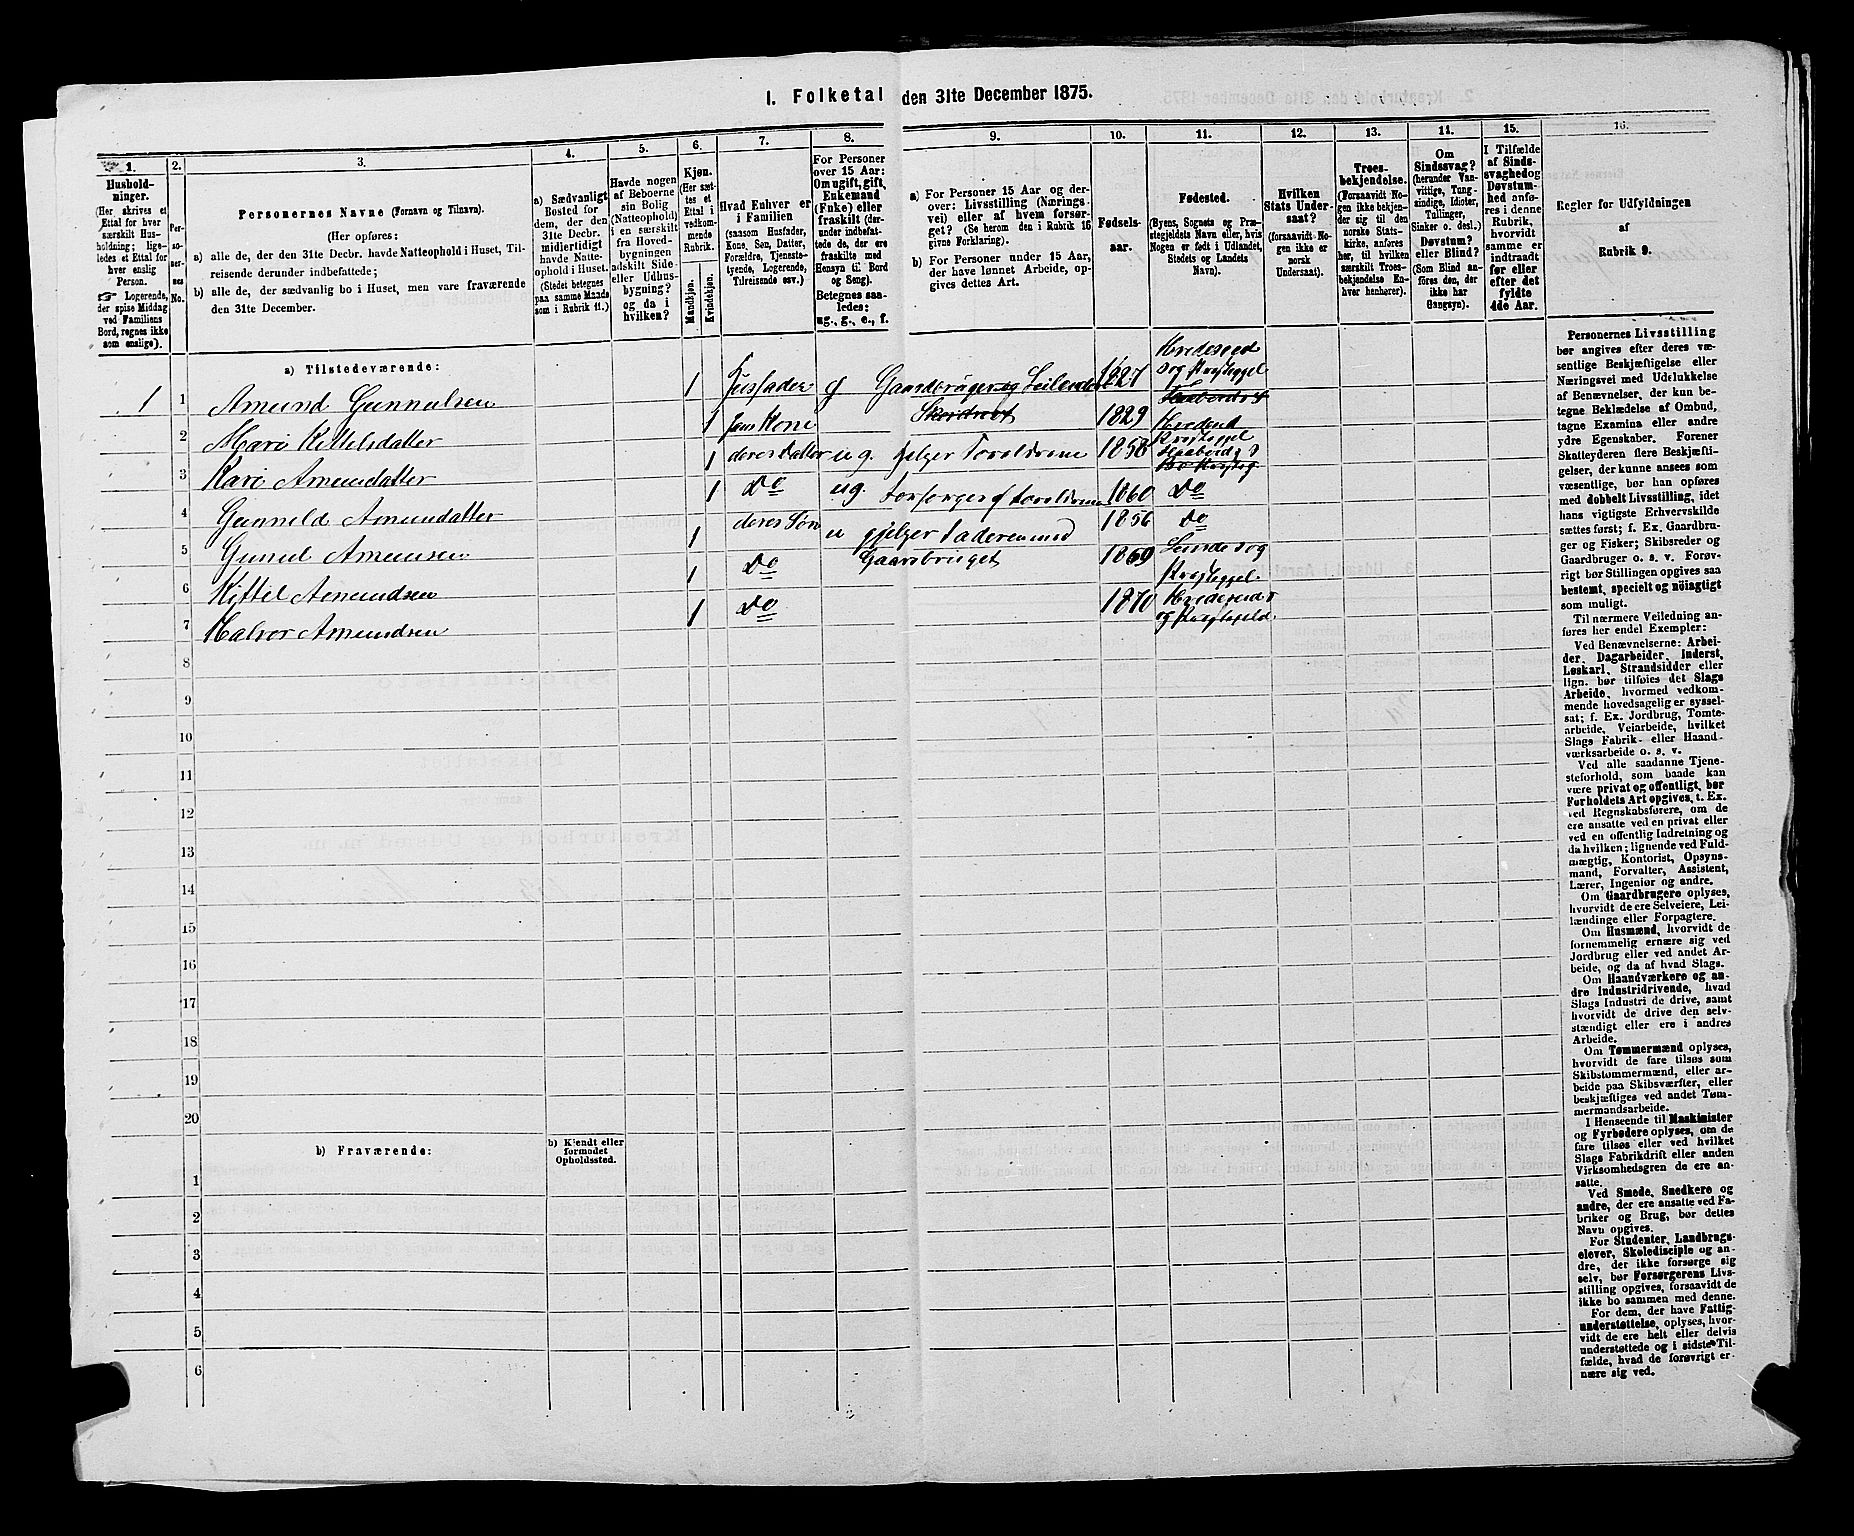 1. Folketal den 31te December 1875.
1. 2. 3. 4. 5. 6. 7. 8. 9. 10. 11. 12. 13. 14. 15. 16.
Hushold-
ninger.
(Her skrives et
Ettal for hver
særskilt Hus-
holdning; lige-
ledes et Ettal for
hver enslig
Person.
☞ Logerende,
der spise Middag
ved Familiens
Bord, regnes ikke
som enslige).
Per-
so-
ner-
nes
No.
Personernes Navne (Fornavn og Tilnavn).
(Her opføres:
a) alle de, der den 31te Decbr. havde Natteophold i Huset, Til-
reisende derunder indbefattede;
b) alle de, der sædvanlig bo i Huset, men vare fraværende
den 31te December.
a) Sædvanligt
Bosted for
dem, der den
31te Decbr.
midlertidigt
havde Natte-
ophold i Huset.
(Stedet betegnes
paa samme Maade
som i Rubrik 11.)
Havde nogen
af Beboerne
sin Bolig
(Natteophold)
i en særskilt
fra Hoved-
bygningen
adskilt Side-
eller Udhus-
bygning?
og da i
hvilken?
Kjøn.
(Her sæt-
tes et
Ettal i
vedkom-
mende
Rubrik.
Mandkjøn.
Kvindekjøn.
Hvad Enhver er
i Familien
(saasom Husfader,
Kone, Søn, Datter,
Forældre, Tjeneste-
tyende, Logerende,
Tilreisende osv.)
For Personer
over 15 Aar:
Om ugift, gift,
Enkemand
(Enke) eller
fraskilt (der-
under indbefat-
tede de, der ere
fraskilte med
Hensyn til Bord
og Seng).
Betegnes saa-
ledes:
ug., g., e., f.
a) For Personer 15 Aar og der-
over: Livsstilling (Nærings-
vei) eller af hvem forsør-
get? (Se herom den i Rubrik 16
givne Forklaring).
b) For Personer under 15 Aar,
der have lønnet Arbeide, op-
gives dettes Art.
Fødsels-
aar.
Fødested.
(Byens, Sognets og Præ-
stegjeldets Navn eller, hvis
Nogen er født i Udlandet,
Stedets og Landets
Navn).
Hvilken
Stats Under-
saat?
(forsaavidt No-
gen ikke er
norsk
Undersaat).
Troes-
bekjendelse.
(Forsaavidt No-
gen ikke bekjen-
der sig til den
norske Stats-
kirke, anføres
her, til hvilken
særskilt Troes-
bekjendelse En-
hver henhører).
Om
Sindssvag?
(herunder Van-
vittige, Tung-
sindige, Idioter,
Tullinger,
Sinker o. desl.)
Døvstum?
eller Blind?
(Som Blind an-
føres den, der
ikke har
Gangsyn).
I Tilfælde
af Sinds-
svaghed og
Døvstum-
hed anfø-
res i denne
Rubrik,
hvorvidt
samme er
indtraadt
før eller
efter det
fyldte
4de Aar.
Regler for Udfyldningen
af
Rubrik 9.
a) Tilstedeværende:
1 1 Amund Gunnulsen 1 Husfader g Gaardbruger og Leilending 1827
2 Mari Kittelsdatter 1 hans Kone 1829
3 Kari Amundatter 1 deres Datter ug. 1858
4 Gunnild Amundatter 1 Do ug. 1860 Do
5 Gunul Amundsen 1 deres Søn u 1856 Do
6 Kittel Amundsen 1 Do Gaardbruget 1869
7 Halvor Amundsen 1 Do 1870
8
9
10
11
12
13
14
15
16
17
18
19
20
b) Fraværende:
b) Kjendt eller
formodet
Opholdssted.
1
2
3
4
5
6
Personernes Livsstilling
bør angives efter deres væ-
sentlige Beskjæftigelse eller
Næringsvei med Udelukkelse
af Benævnelser, der kun be-
tegne Beklædelse af Ombud,
tagne Examina eller andre
ydre Egenskaber. Forener
Skatteyderen flere Beskjæfti-
gelser, der kunne ansees som
væsentlige, bør han opføres
med dobbelt Livsstilling, idet
hans vigtigste Erhvervskilde
sættes først; f. Ex. Gaardbru-
ger og Fisker; Skibsreder og
Gaardbruger o. s. v. Forøv-
rigt bør Stillingen opgives saa
bestemt, specielt og nöiagtigt
som muligt.
Til nærmere Veiledning an-
føres her endel Exempler:
Ved Benævnelserne: Arbei-
der, Dagarbeider, Inderst,
Løskarl, Strandsidder eller
lign. bør tilføies det Slags
Arbeide, hvormed vedkom-
mende hovedsagelig er syssel-
sat; f. Ex. Jordbrug, Tomte-
arbeide, Veiarbeide, hvilket
Slags Fabrik- eller Haand-
værksarbeide o. s. v.
Ved alle saadanne Tjene-
steforhold, som baade kan
være privat og offentligt, bør
Forholdets Art opgives, t. Ex.
ved Regnskabsførere, om de
ere ansatte ved en privat eller
ved en offentlig Indretning og
da hvilken; lignende ved Fuld-
mægtig, Kontorist, Opsyns-
mand, Forvalter, Assistent,
Lærer, Ingeniør og andre.
Om Gaardbrugere oplyses,
hvorvidt de ere Selveiere, Lei-
lændinge eller Forpagtere.
Om Husmænd, hvorvidt de
fornemmelig ernære sig ved
Jordbrug eller ved andet Ar-
beide, og da af hvad Slags.
Om Haandværkere og an-
dre Industridrivende, hvad
Slags Industri de drive, samt
hvorvidt de drive den selv-
stændigt eller ere i andres
Arbeide.
Om Tømmermænd oplyses,
hvorvidt de fare tilsøs som
Skibstømmermænd, eller ar-
beide paa Skibsværfter, eller
beskjæftiges ved andet Tøm-
mermandsarbeide.
I Henseende til Maskinister
og Fyrbødere oplyses, om de
fare tilsøs eller ved hvilket
Slags Fabrikdrift eller anden
Virksomhedsgren de ere an-
satte.
Ved Smede, Snedkere og
andre, der ere ansatte ved Fa-
briker og Brug, bør dettes
Navn opgives.
For Studenter, Landbrugs-
elever, Skoledisciple og an-
dre, der ikke forsørge sig
selv, bør Forsørgerens Livs-
stilling opgives, forsaavidt de
ikke bo sammen med denne.
For dem, der have Fattig-
understøttelse, oplyses, hvor-
vidt de ere helt eller delvis
understøttede og i sidste Til-
fælde, hvad de forøvrigt er-
nære sig ved.